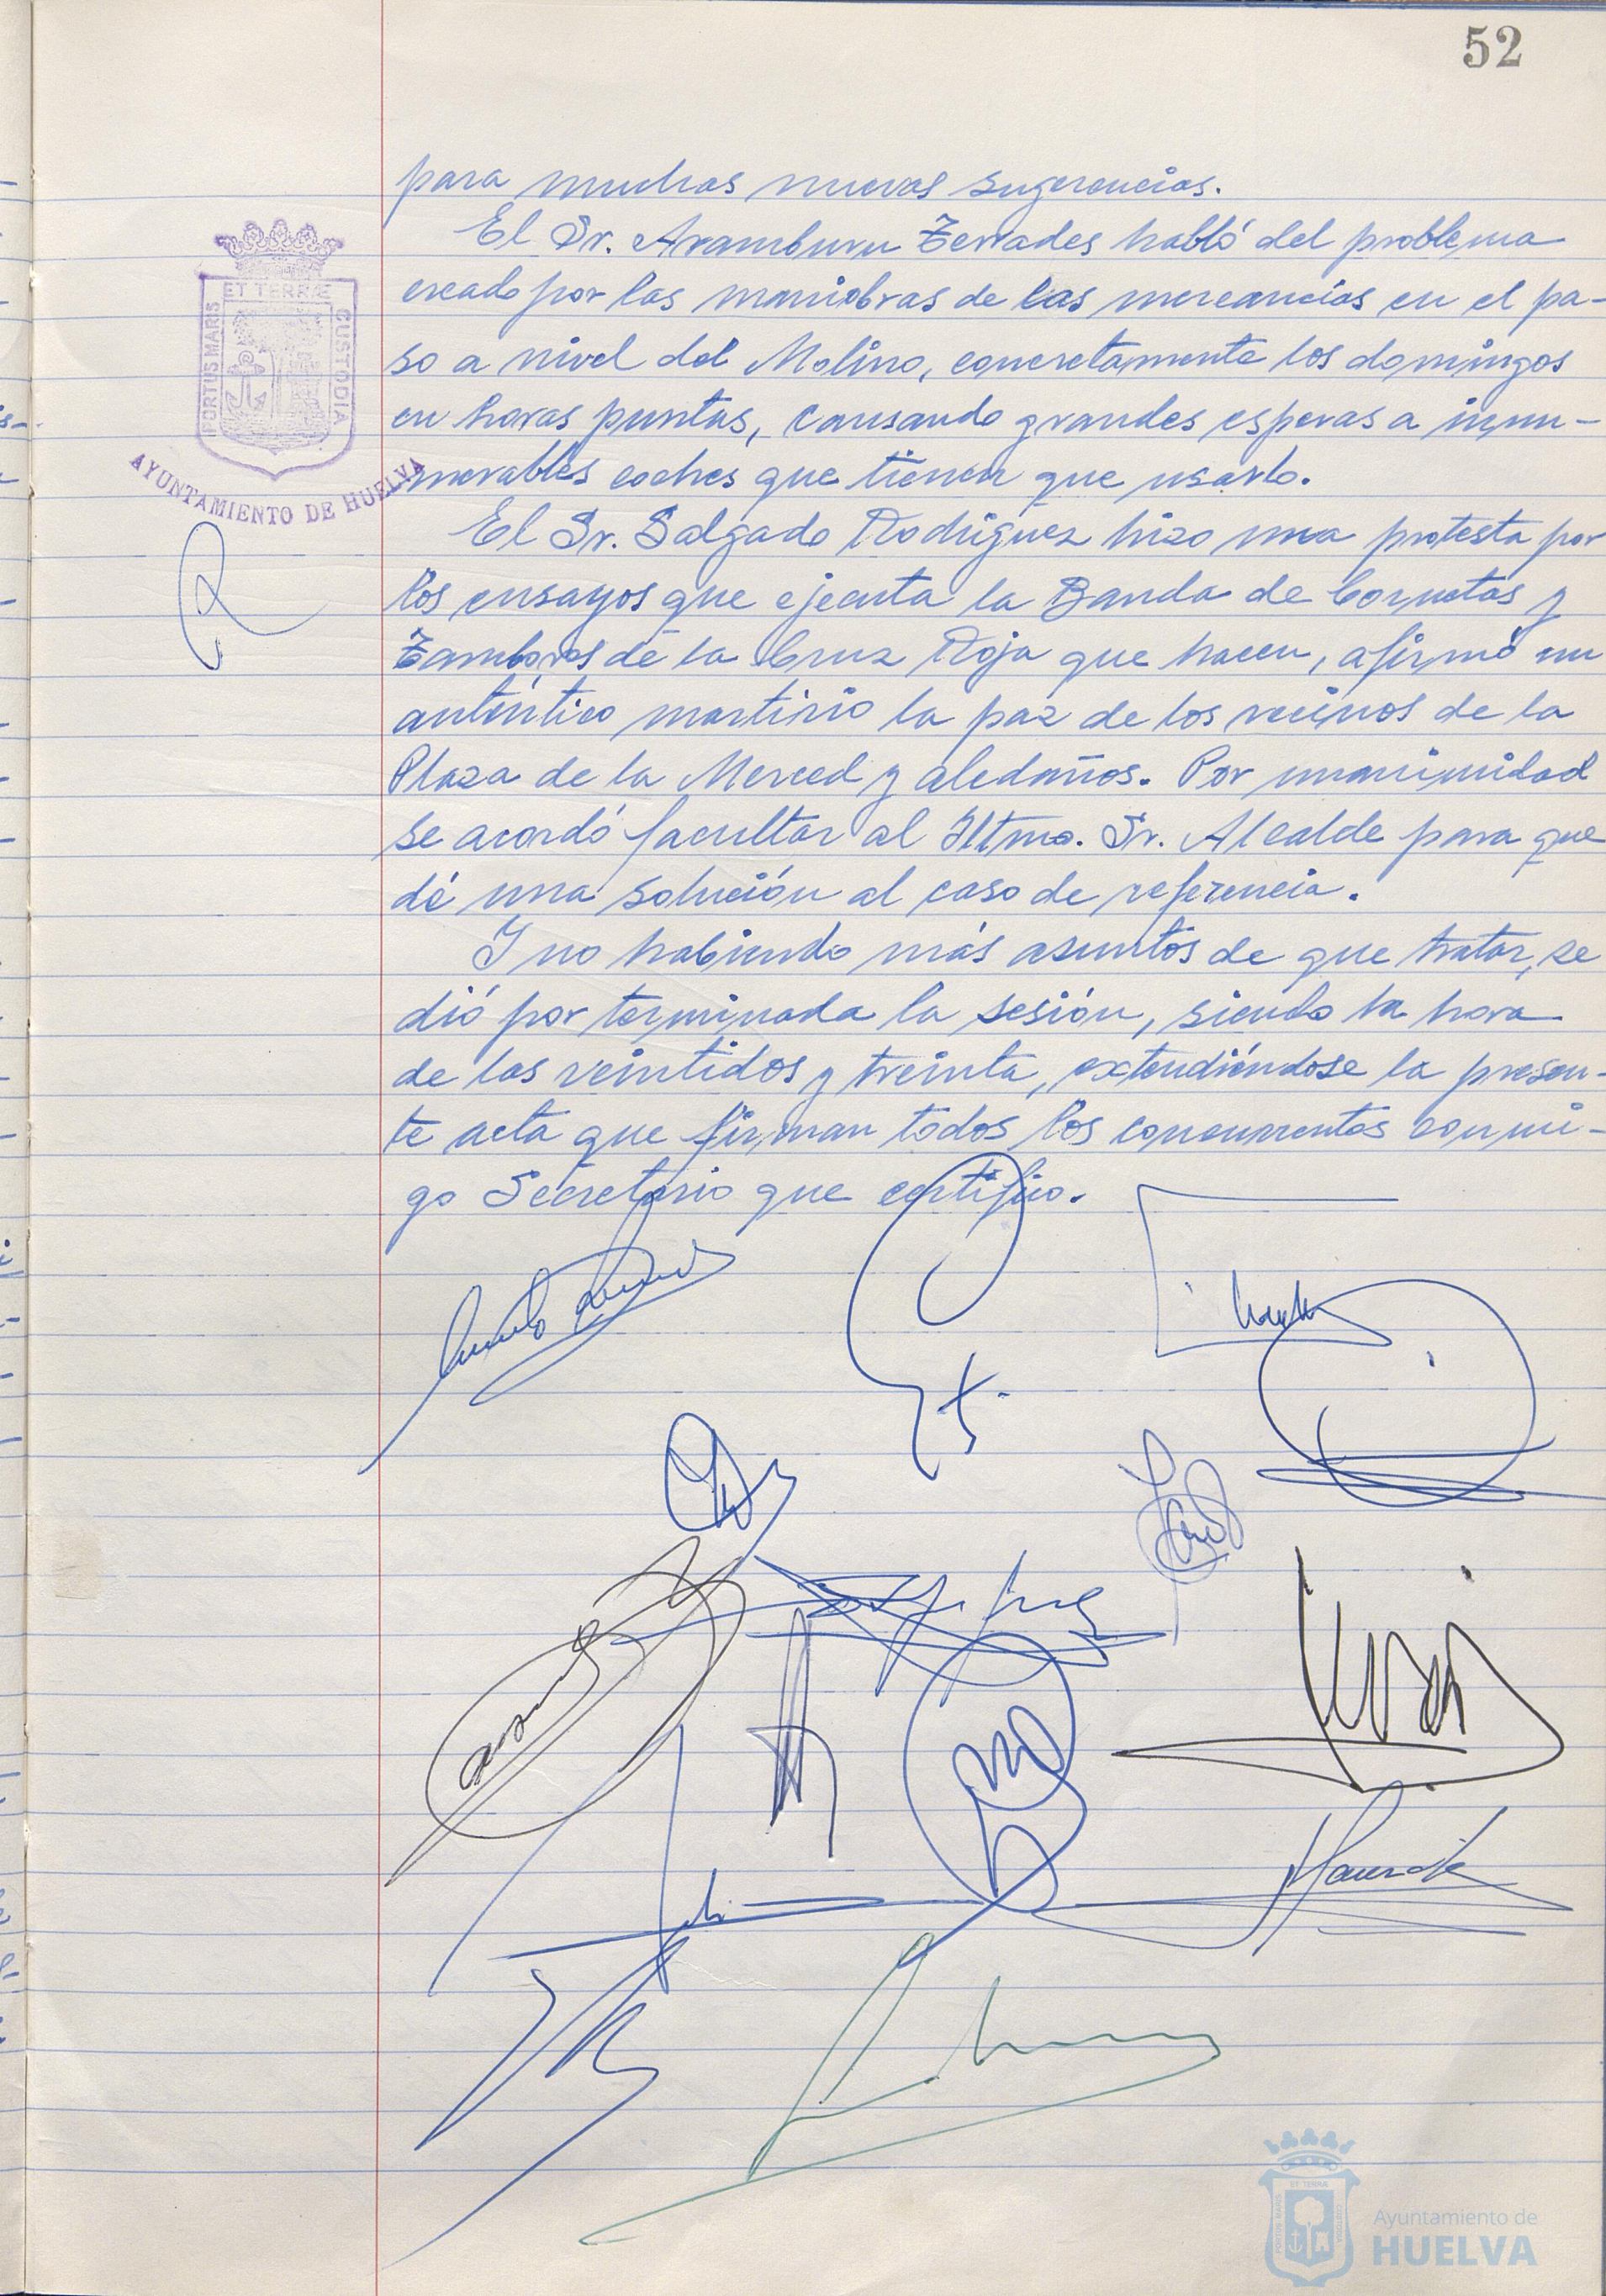 52
para muchas nuevas sugerencias.
El Sr. Aramburu Terrades habló del problema
creado por las maniobras de las mercancías en el pa-
so a nivel del Molino, concretamente los domingos
en horas puntas, causando grandes esperas a innu-
merables coches que tienen que usarlo.
El Sr. Salgado Rodríguez hizo una protesta por
los ensayos que ejecuta la Banda de Cornetas y
Tambores de la Cruz Roja que hacen, afirmó un
auténtico martirio la paz de los vecinos de la
Plaza de la Merced y aledaños. Por unanimidad
se acordó facultar al Iltmo. Sr. Alcalde para que
dé una solución al caso de referencia.
Y no habiendo más asuntos de que tratar, se
dió por terminada la sesión, siendo la hora
de las veintidos y treinta, extendiéndose la presen-
te acta que firman todos los concurrentes conmi-
go Secretario que certifico.
PORTUS MARIS
ET TERRÆ
CUSTODIA
AYUNTAMIENTO DE HUELVA
Ayuntamiento de
HUELVA